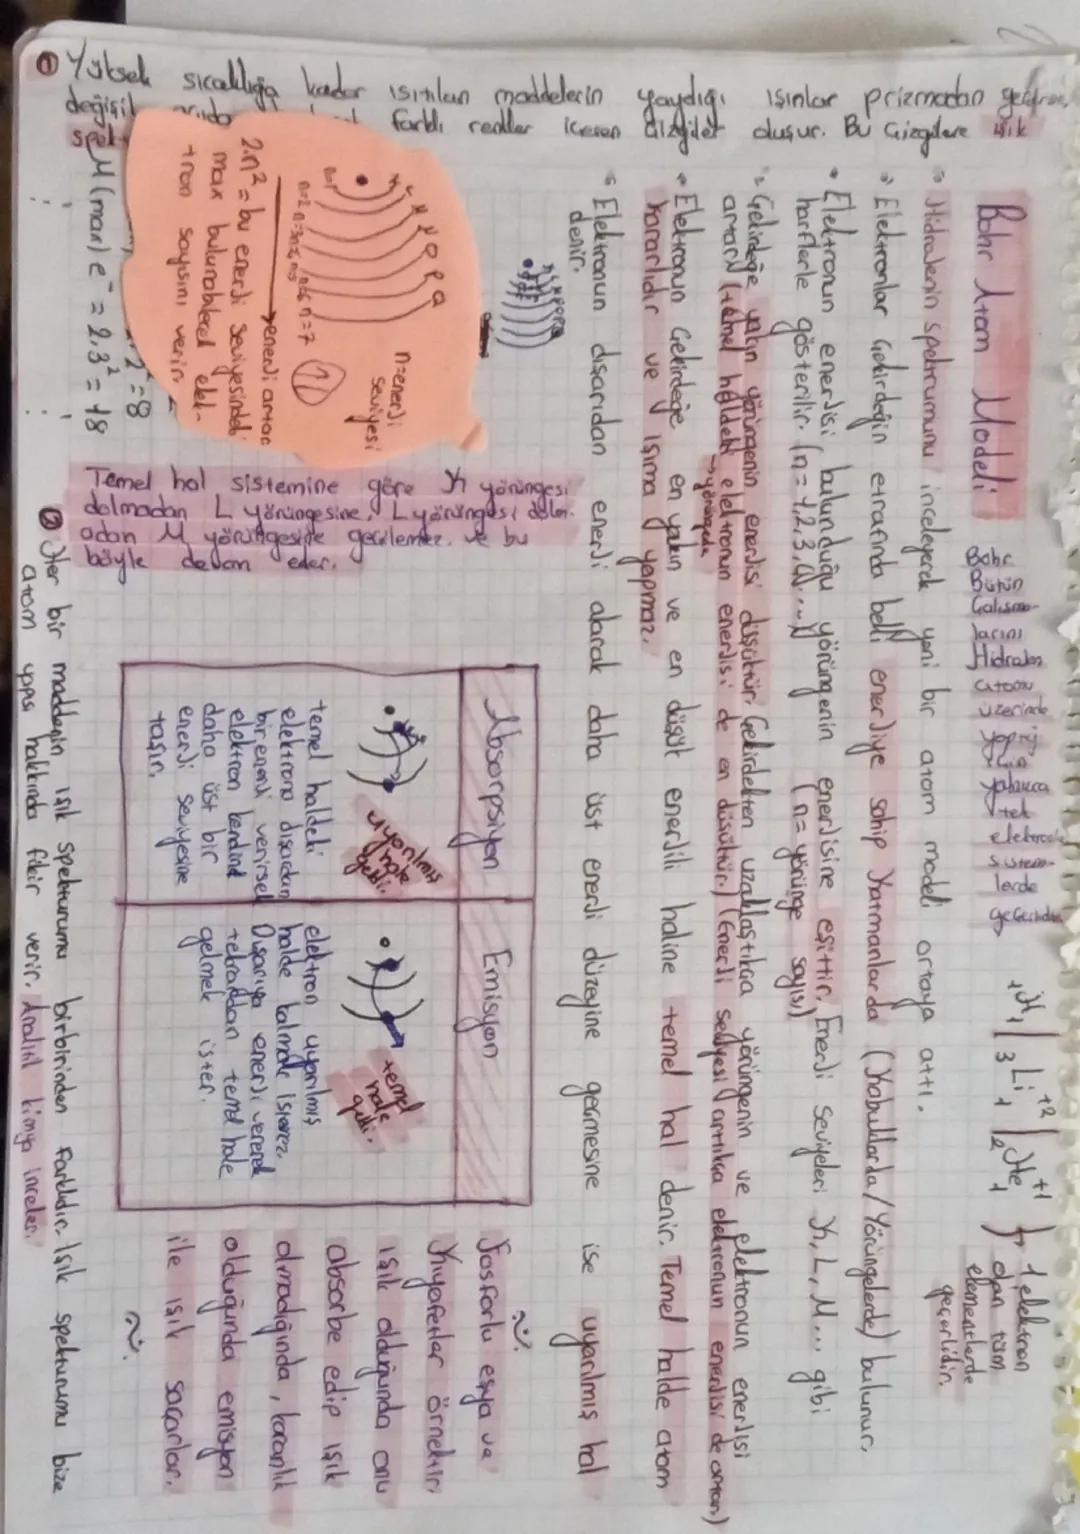 Bohr Atom Modeli
Bohr
Bütün
Çalışma-
larını
Hidrojen
atomu
üzerinde
yalnızca
tek
elektronlu
sistem-
lerde
geçerlidir
₁H₁ | ₃Li₁⁺² | ₂He₁⁺¹ } 1 elektron
olan tüm
elementlerde
geçerlidir.
Hidrojenin spektrumunu inceleyerek yeni bir atom modeli ortaya attı.
Elektronlar Çekirdeğin etrafında belli enerjiye sahip Katmanlarda (Kabuklarda/Yörüngelerde) bulunur.
Elektronun enerjisi bulunduğu yörüngenin enerjisine eşittir. Enerji Seviyeleri K, L, M... gibi
harflerle gösterilir. (n = 1,2,3,4...) (n = yörünge sayısı)
Çekirdeğe yakın yörüngenin enerjisi düşüktür. Çekirdekten uzaklaştıkça yörüngenin ve elektronun enerjisi
artar. (temel haldeki elektronun enerjisi de en düşüktür.) (Enerji seviyesi artıkça elektronun enerjisi de artar)
→yörüngede
Elektronun Çekirdeğe en yakın ve en düşük enerjili haline temel hal denir. Temel halde atom
kararlıdır ve ışıma yapmaz.
Elektronun dışarıdan enerji alarak daha üst enerji düzeyine geçmesine ise uyarılmış hal
denir.
K L M N O P Q
n=enerji
seviyesi
n=1
n=2 n=3 n=4 n=5 n=6 n=7
①
→enerji artar
2.n² = bu enerji seviyesindeki
max bulunabilecek elek-
tron sayısını verir.
2² = 8
M (max) e⁻ = 2.3² = 18
Temel hal sistemine göre K yörüngesi
dolmadan L yörüngesine, L yörüngesi dolm-
adan M yörüngesine geçilemez. ve bu
böyle devam eder.
Absorpsiyon
uyarılmış
hale
geldi.
temel haldeki
elektrona dışardan
bir enerji verirsek
elektron kendini
daha üst bir
enerji seviyesine
taşır.
Emisyon
temel
hale
geldi.
elektron uyarılmış
halde kalmak istemez.
Dışarıya enerji vererek
tekrardan temel hale
gelmek ister.
Fosforlu eşya ve
Kıyafetler örnektir.
ışık olduğunda onu
absorbe edip ışık
olmadığında, karanlık
olduğunda emisyon
ile ışık saçarlar.
① Yüksek sıcaklığa kadar ısıtılan maddelerin yaydığı ışınlar prizmadan geçince,
değişik farklı renkler içeren çizgiler oluşur. Bu Çizgilere ışık
② Her bir maddenin ışık spekturumu birbirinden farklıdır. Işık spekturumu bize
atom yapısı hakkında fikir verir. Analitik kimya inceler.